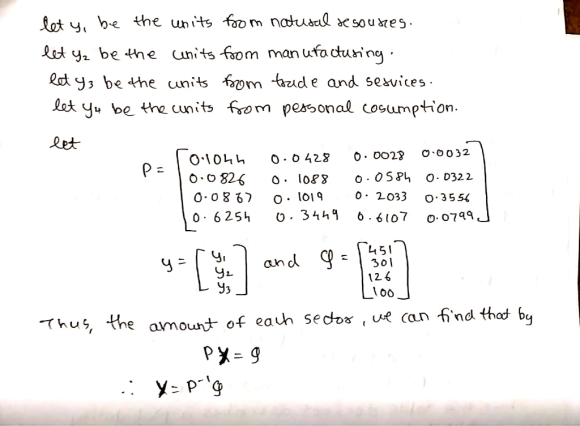 let y₁ be the units from natural resources.
let y₂ be the units from manufacturing.
let y₃ be the units from trade and services.
let y₄ be the units from personal cosumption.
let
P = [0.1044 0.0428 0.0028 0.0032
0.0826 0.1088 0.0584 0.0322
0.0867 0.1019 0.2033 0.3556
0.6254 0.3449 0.6107 0.0799]
y = [y₁ y₂ y₃] and g = [451 301 126 100]
Thus, the amount of each sector, we can find that by
PY = g
∴ Y = P⁻¹g